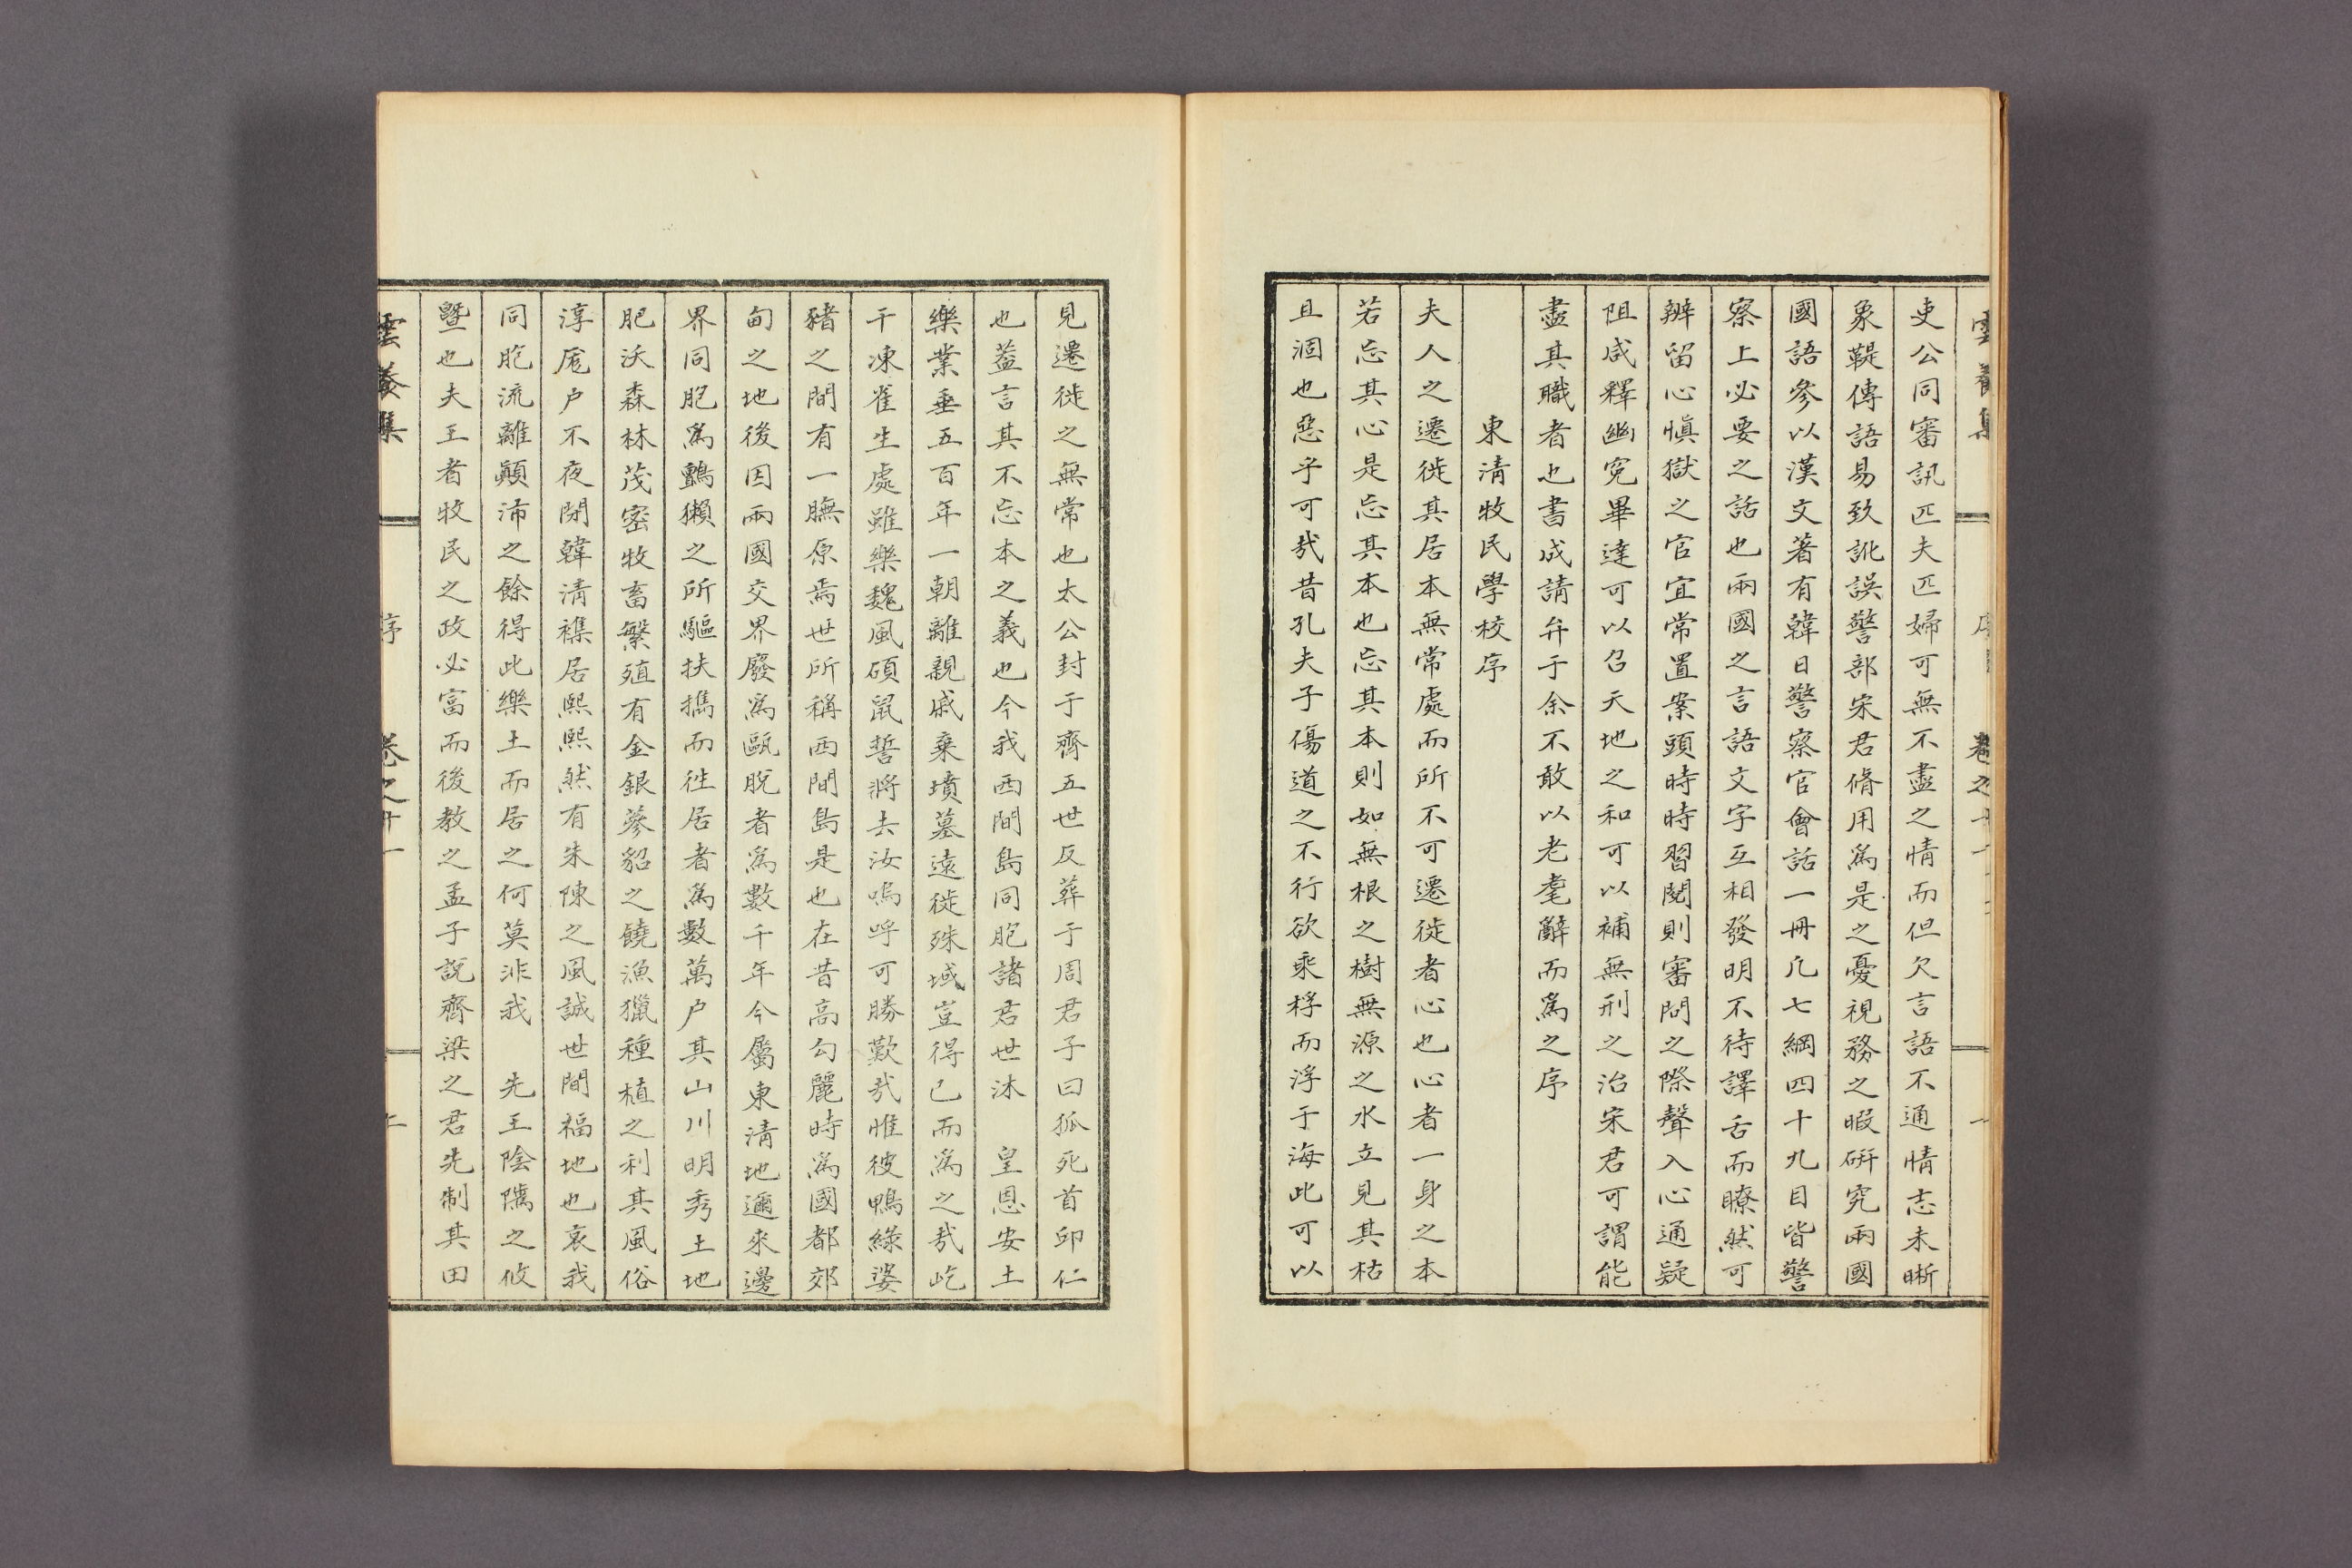 吏公同審訊匹夫匹婦可無不盡之情而但欠言語不通情志未晰
象鞮傳語易致訛誤警部宋君脩用爲是之憂視務之暇硏究兩國
國語參以漢文著有韓日警察官會話一冊凡七綱四十九目皆警
察上必要之話也兩國之言語文字互相發明不待譯舌而瞭然可
辨留心愼獄之官宜常置案頭時時習閱則審問之際聲入心通疑
阻咸釋幽寃畢達可以召天地之和可以補無刑之治宋君可謂能
盡其職者也書成請弁于余不敢以老耄辭而爲之序
東淸牧民學校序
夫人之遷徙其居本無常處而所不可遷徙者心也心者一身之本
若忘其心是忘其本也忘其本則如無根之樹無源之水立見其枯
且涸也惡乎可哉昔孔夫子傷道之不行欲乘桴而浮于海此可以
見遷徙之無常也太公封于齊五世反葬于周君子曰狐死首邱仁
也蓋言其不忘本之義也今我西間島同胞諸君世沐 皇恩安土
樂業垂五百年一朝離親戚棄墳墓遠徙殊域豈得已而爲之哉屹
干凍雀生處雖樂魏風碩鼠誓將去汝嗚呼可勝歎哉惟彼鴨綠婆
豬之間有一膴原焉世所稱西間島是也在昔高勾麗時爲國都郊
甸之地後因兩國交界廢爲甌脫者爲數千年今屬東淸地邇來邊
界同胞爲鸇獺之所驅扶攜而徃居者爲數萬户其山川明秀土地
肥沃森林茂密牧畜繁殖有金銀蔘貂之饒漁獵種植之利其風俗
淳厖户不夜閉韓淸襍居熙熙然有朱陳之風誠世間福地也哀我
同胞流離顚沛之餘得此樂土而居之何莫非我 先王陰隲之攸
曁也夫王者牧民之政必富而後教之孟子説齊梁之君先制其田
雲養集 序 卷之十一